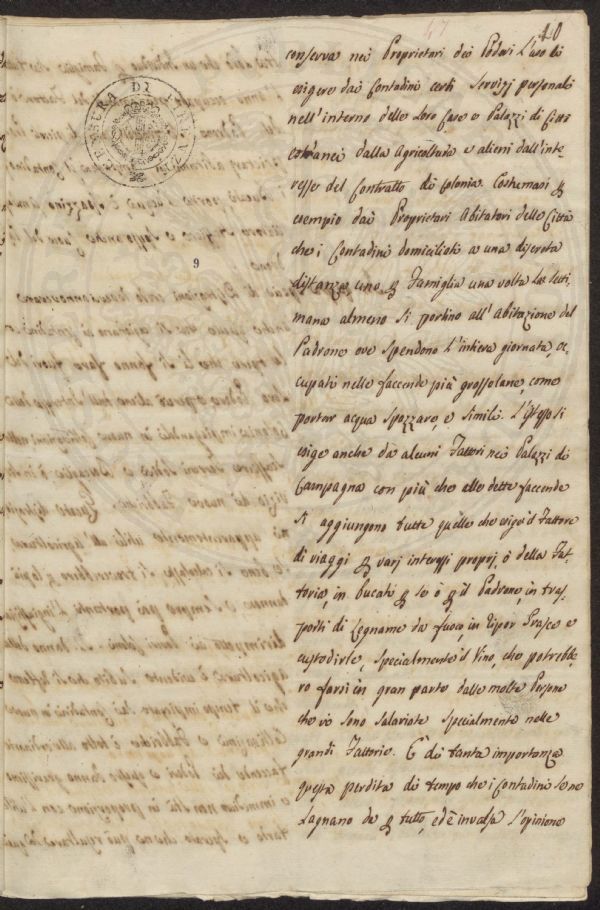 47 10
conserva nei Proprietari dei Poderi l'uso di
esigere dai Contadini certi Servizj personali
nell'interno delle loro Case o Palazzi di Città
estranei dalla Agricoltura e alieni dall'inte-
resse del Contratto di Colonia. Costumasi &
esempio dai Proprietari Abitatori delle Città
che i Contadini domiciliati a una discreta
distanza uno & Famiglia una volta la setti-
mana almeno si portino all'Abitazione del
Padrone ove spendono l'intiera giornata, oc-
cupati nelle faccende più grossolane, come
portar acqua spazzare, e simili. L'istesso si
esige anche da alcuni Fattori nei Palazzi di
Campagna con più che alle dette faccende
si aggiungono tutte quelle che esige il Fattore
di viaggi & varj interessi proprj, ò della Fat-
toria, in bucati & se ò & il Padrone, in tras-
porti di Legname da fuoco, in
custodirle, specialmente il Vino, che potrebbe-
ro farsi in gran parte dalle molte Persone
che vi sono salariate specialmente nelle
grandi Fattorie. E' di tanta importanza
questa perdita di tempo che i Contadini se ne
lagnano da & tutto, ed è invalsa l'opinione
9